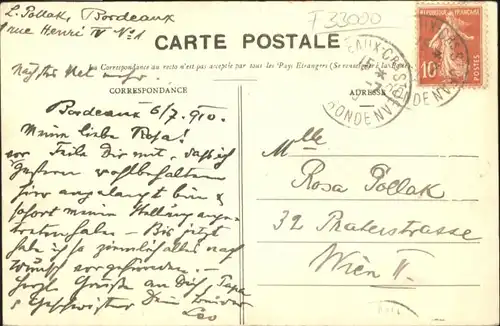 L. Pollak, Bordeaux
rue Henri IV No 1
T 33000
REPUBLIQUE FRANÇAISE
10
CARTE POSTALE
La Correspondance au recto n'est pas acceptée par tous les Pays Etrangers (Se renseigner à la Poste)
CORRESPONDANCE
ADRESSE
Nächstes Mal mehr
Bordeaux 6/7. 910.
Meine liebe Rosa!
Teile Dir mit, daß ich
gestern wohlbehalten
hier angelangt bin &
sofort meine Stellung ange-
treten habe. - Bis jetzt
habe ich so ziemlich alles nach
Wunsch vorgefunden. -
Herzl. Grüße an Dich, Papa
& Geschwister Dein Bruder
Leo
Mlle
Rosa Pollak
32 Praterstrasse
Wien II.